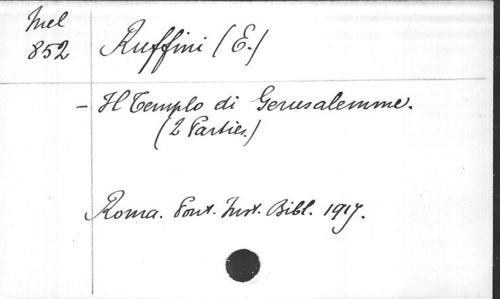 Mel
852
Ruffini (E.)
- Il Templo di Gerusalemme.
(2 Parties.)
Roma. Pont. Inst. Bibl. 1917.